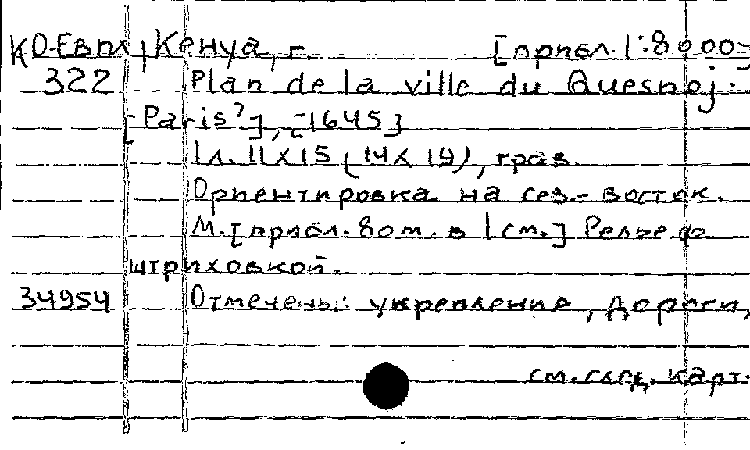 КО-Евп/ Кенуа, г. [прибл. 1:8000]
322 Plan de la ville du Quesnoj.
[Paris?], [1645]
1 л. 11 X 15 (14 X 19), грав.
Ориентировка на сев.-восток.
М. [прибл. 80 м. в 1 см.] Рельеф
штриховкой.
34954 Отмечены: укрепления, дороги,
см. след. карт.